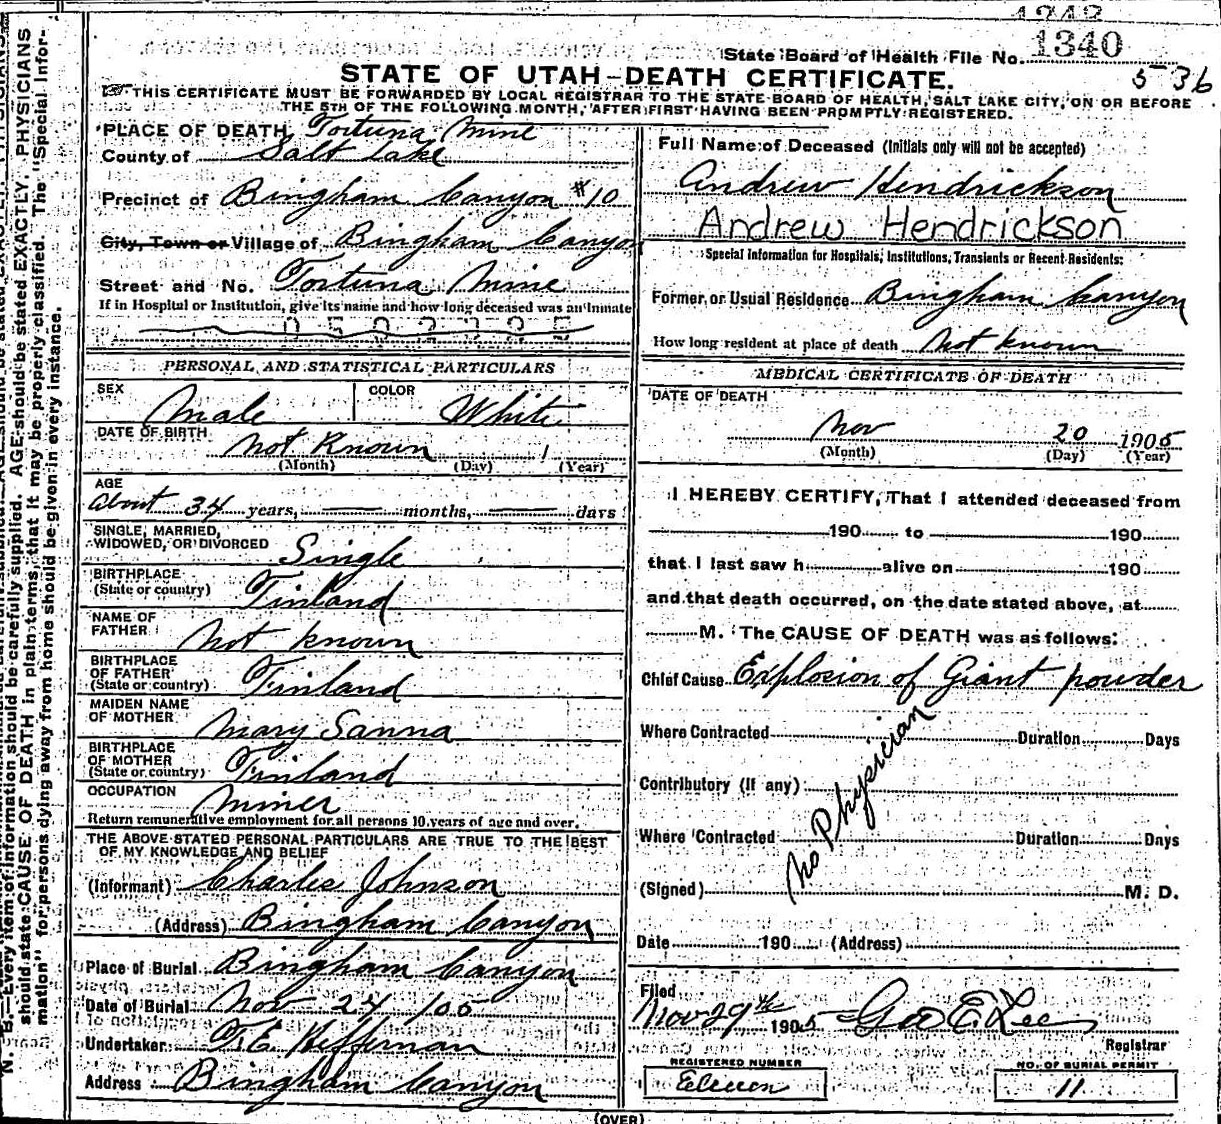 1340
State Board of Health File No.
STATE OF UTAH-DEATH CERTIFICATE.
536
THIS CERTIFICATE MUST BE FORWARDED BY LOCAL REGISTRAR TO THE STATE BOARD OF HEALTH, SALT LAKE CITY, ON OR BEFORE
THE 5TH OF THE FOLLOWING MONTH, AFTER FIRST HAVING BEEN PROMPTLY REGISTERED.
PLACE OF DEATH, Fortuna Mine
County of Salt Lake
Precinct of Bingham Canyon #10
City, Town or Village of Bingham Canyon
Street and No. Fortuna Mine
If in Hospital or Institution, give its name and how long deceased was an Inmate
PERSONAL AND STATISTICAL PARTICULARS
SEX Male COLOR White
DATE OF BIRTH Not Known
(Month) (Day) (Year)
AGE
About 34 years, months, days
SINGLE, MARRIED,
WIDOWED, OR DIVORCED Single
BIRTHPLACE
(State or country) Finland
NAME OF
FATHER Not known
BIRTHPLACE
OF FATHER
(State or country) Finland
MAIDEN NAME
OF MOTHER Mary Sanna
BIRTHPLACE
OF MOTHER
(State or country) Finland
OCCUPATION Miner
Return remunerative employment for all persons 10 years of age and over.
THE ABOVE STATED PERSONAL PARTICULARS ARE TRUE TO THE BEST
OF MY KNOWLEDGE AND BELIEF
(Informant) Charles Johnson
(Address) Bingham Canyon
Place of Burial Bingham Canyon
Date of Burial Nov 24 /05
Undertaker T. E. Heffernan
Address Bingham Canyon
Full Name of Deceased (Initials only will not be accepted)
Andrew Hendrickson
Andrew Hendrickson
Special Information for Hospitals, Institutions, Transients or Recent Residents:
Former or Usual Residence Bingham Canyon
How long resident at place of death Not known
MEDICAL CERTIFICATE OF DEATH
DATE OF DEATH
Nov 20 1905
(Month) (Day) (Year)
I HEREBY CERTIFY, That I attended deceased from
190 to 190
that I last saw h alive on 190
and that death occurred, on the date stated above, at
M. The CAUSE OF DEATH was as follows:
Chief Cause Explosion of Giant powder
Where Contracted Duration Days
Contributory (If any)
Where Contracted Duration Days
No Physician
(Signed) M. D.
Date 190 (Address)
Filed
Nov 29th 1905 Geo E. Lee
Registrar
REGISTERED NUMBER
Eleven
NO. OF BURIAL PERMIT
11
(OVER)
N. B.—Every item of information should be carefully supplied. AGE should be stated EXACTLY. PHYSICIANS
should state CAUSE OF DEATH in plain terms, that it may be properly classified. The "Special Infor-
mation" for persons dying away from home should be given in every instance.